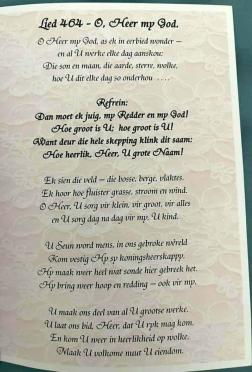 Lied 464 - O, Heer my God.
O Heer my God, as ek in eerbied wonder –
en al U werke elke dag aanskou:
Die son en maan, die aarde, sterre, wolke,
hoe U dit elke dag so onderhou ....
Refrein:
Dan moet ek juig, my Redder en my God!
Hoe groot is U; hoe groot is U!
Want deur die hele skepping klink dit saam:
Hoe heerlik, Heer, U grote Naam!
Ek sien die veld – die bosse, berge, vlaktes.
Ek hoor hoe fluister grasse, stroom en wind.
O Heer, U sorg vir klein, vir groot, vir alles
en U sorg dag na dag vir my, U kind.
U Seun word mens, in ons gebroke wêreld
Kom vestig Hy sy koningsheerskappy.
Hy maak weer heel wat sonde hier gebreek het.
Hy bring weer hoop en redding – ook vir my.
U maak ons deel van al U grootse werke.
U laat ons bid, Heer, dat U ryk mag kom.
En kom U weer in heerlikheid op wolke,
Maak U volkome nuut U eiendom.